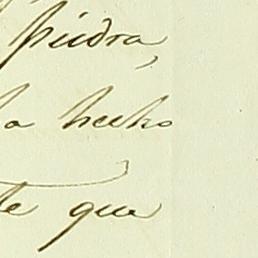 piedra,
ha hecho
te que